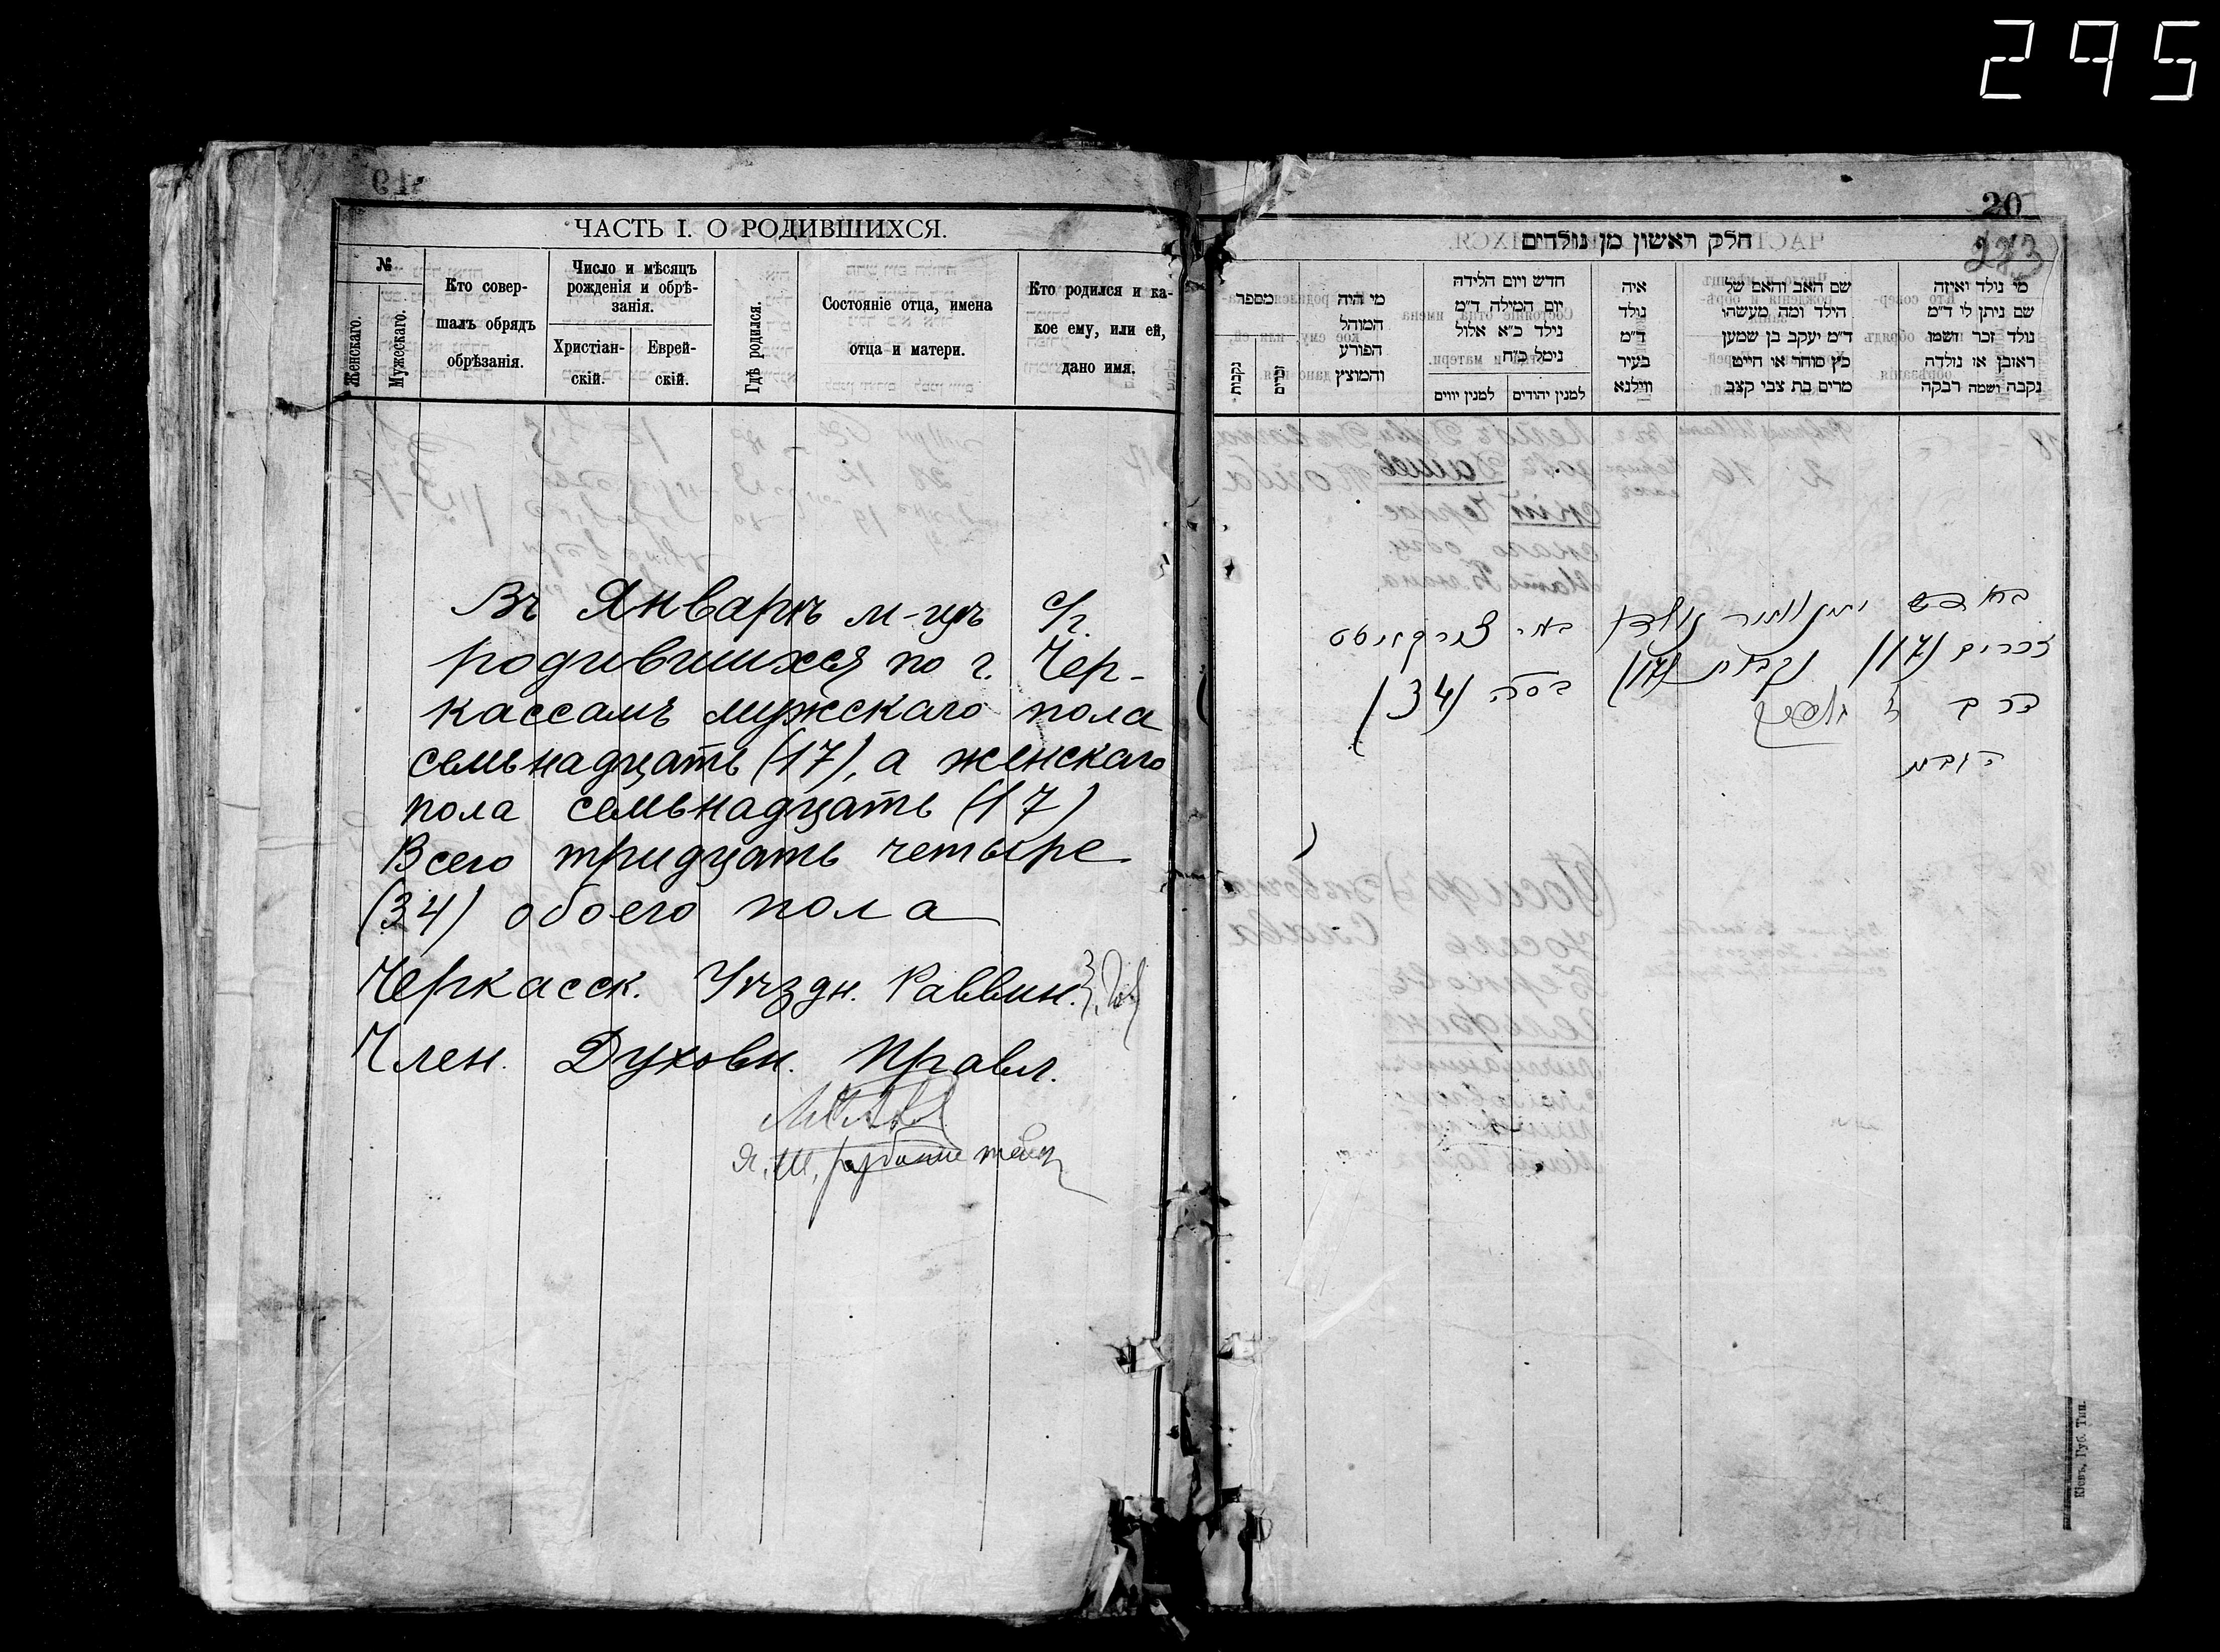 295
ЧАСТЬ I. О РОДИВШИХСЯ.
№
Женскаго.
Мужескаго.
Кто совер-
шалъ обрядъ
обрѣзанія.
Число и мѣсяцъ
рожденія и обрѣ-
занія.
Христіан-
скій.
Еврей-
скій.
Гдѣ родился.
Состояніе отца, имена
отца и матери.
Кто родился и ка-
кое ему, или ей,
дано имя.
Въ Январѣ м-цѣ с/г.
родившихся по г. Чер-
кассамъ мужскаго пола
семьнадцать (17), а женскаго
пола семьнадцать (17)
Всего тридцать четыре
(34) обоего пола
Черкасск. Уѣздн. Раввин.
Член. Духовн. Правл.
20
חלק ראשון מן נולדים
מי נולד ואיזה
שם ניתן לו ד"מ
נולד זכר ושמו
ראובן או נולדה
נקבה ושמה רבקה
שם האב והאם של
הילד ומה מעשהו
ד"מ יעקב בן שמעון
כץ סוחר או חייט
מרים בת צבי קצב
איה
נולד
ד"מ
בעיר
ווילנא
חדש ויום הלידה
יום המילה ד"מ
נילד כ"א אלול
נימל כ"ח
למנין יהודים
למנין יווים
מי היה
המוהל
הפורע
והמוצץ
מספר
זכרים
נקבות
זכרים (17) נקבות (17) בסה (34)
Кіевъ, Губ. Тип.